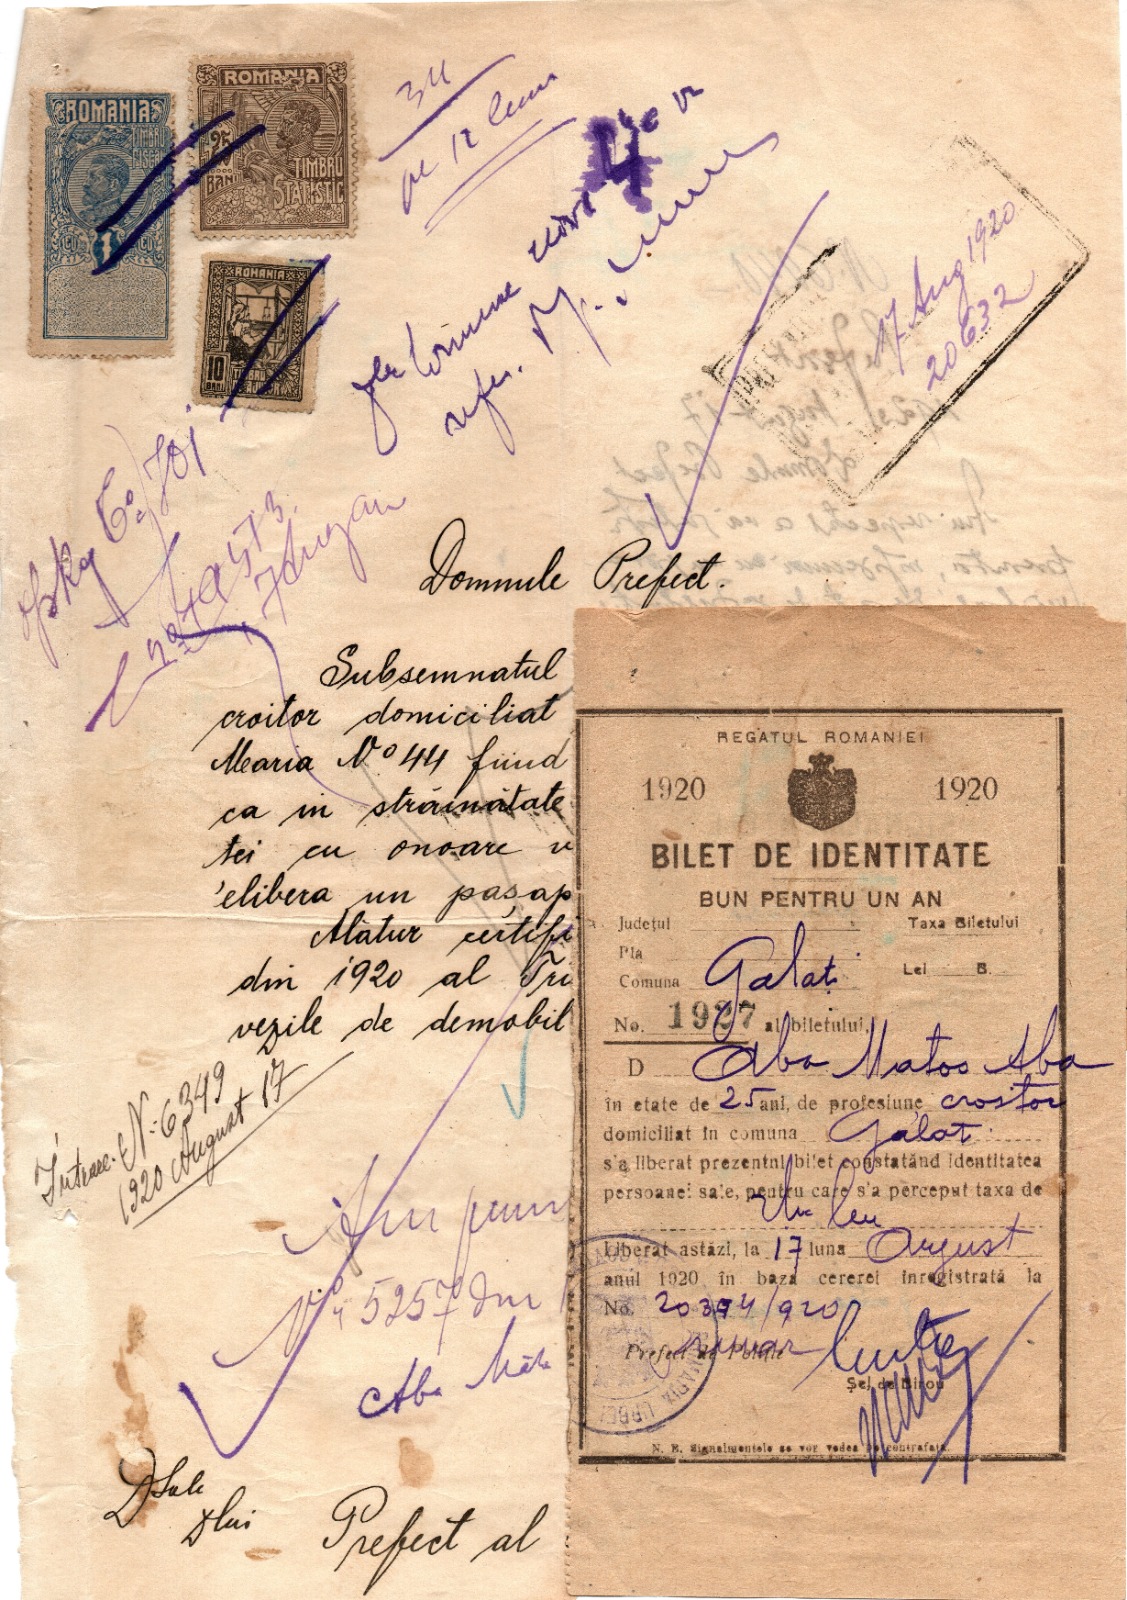 ROMANIA
TIMBRU
FISCAL
1
ROMANIA
25
BANI
TIMBRU
STATISTIC
ROMANIA
10
BANI
34
17 Aug 1920
20632
Domnule Prefect.
Subsemnatul
croitor domiciliat
Maria No 44 fiind
ca in străinătate
tei cu onoare v
elibera un pașap
Alătur certifi
din 1920 al Tri
vezile de demobil
N. 6349
1920 August 17
No 5257 din
Aba
D Sale
D lui
Prefect al
REGATUL ROMANIEI
1920 1920
BILET DE IDENTITATE
BUN PENTRU UN AN
Județul Taxa Biletului
Pla
Comuna Galați Lei B.
No. 1927 al biletului,
D Aba Matos Aba
în etate de 25 ani, de profesiune croitor
domiciliat în comuna Galați
s'a liberat prezentul bilet constatând identitatea
persoanei sale, pentru care s'a perceput taxa de
Un leu
Liberat astăzi, la 17 luna August
anul 1920 în baza cererei înregistrată la
No. 20394/920
Prefect de Poliție
Șef de Birou
N. B. Signalmentele se vor vedea pe contrafață.